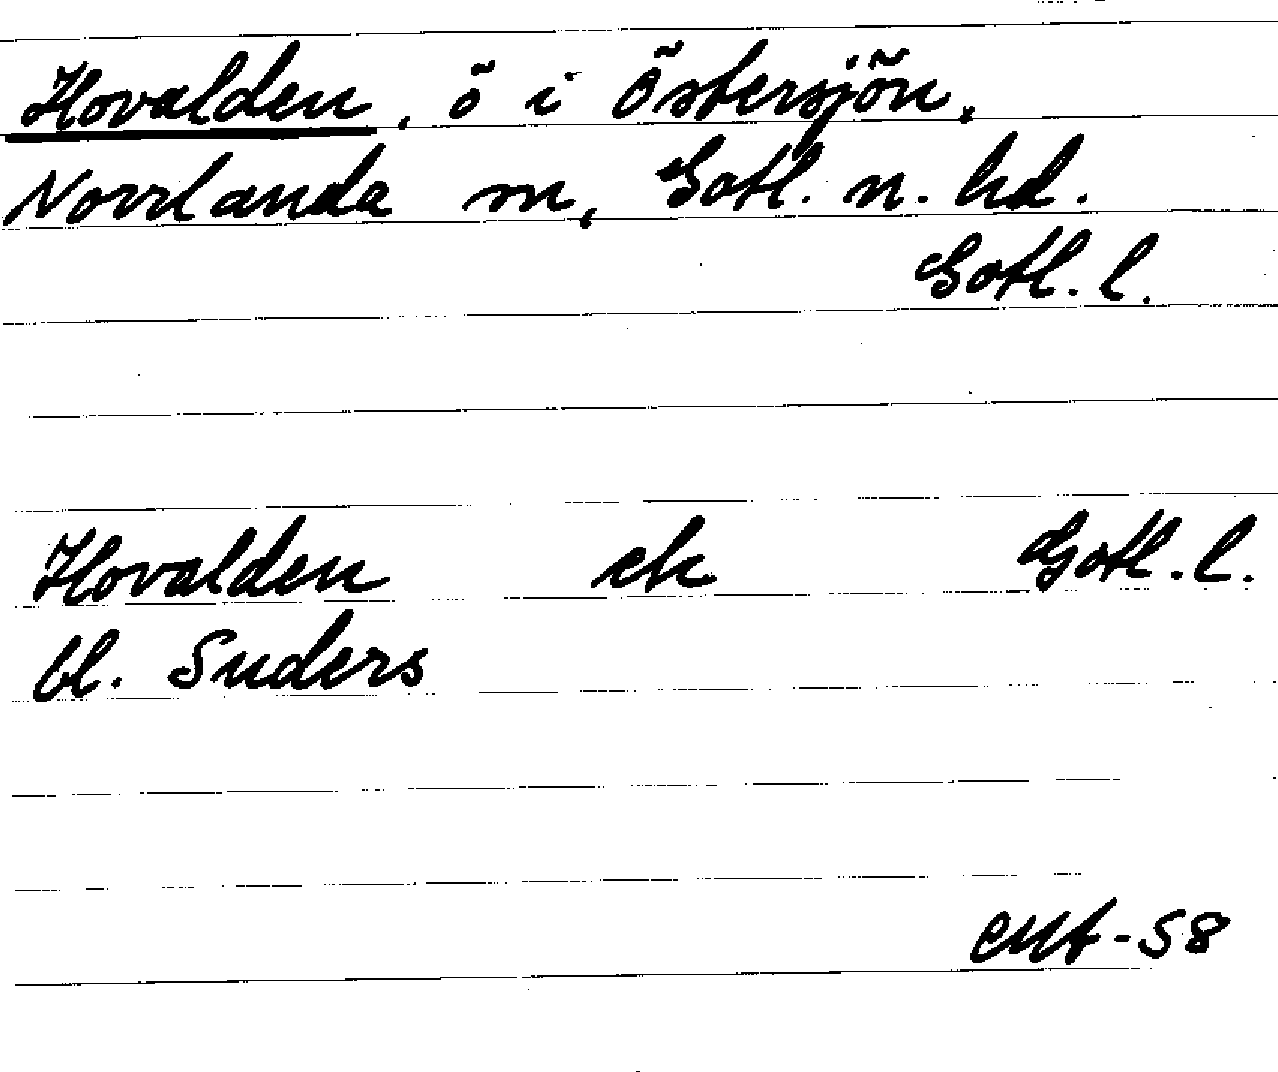 Hovalden, ö i Östersjön,
Norrlanda sn, Gotl. n. hd.
Gotl. l.
Hovalden ek Gotl. l.
bl. Suders
EMA-58